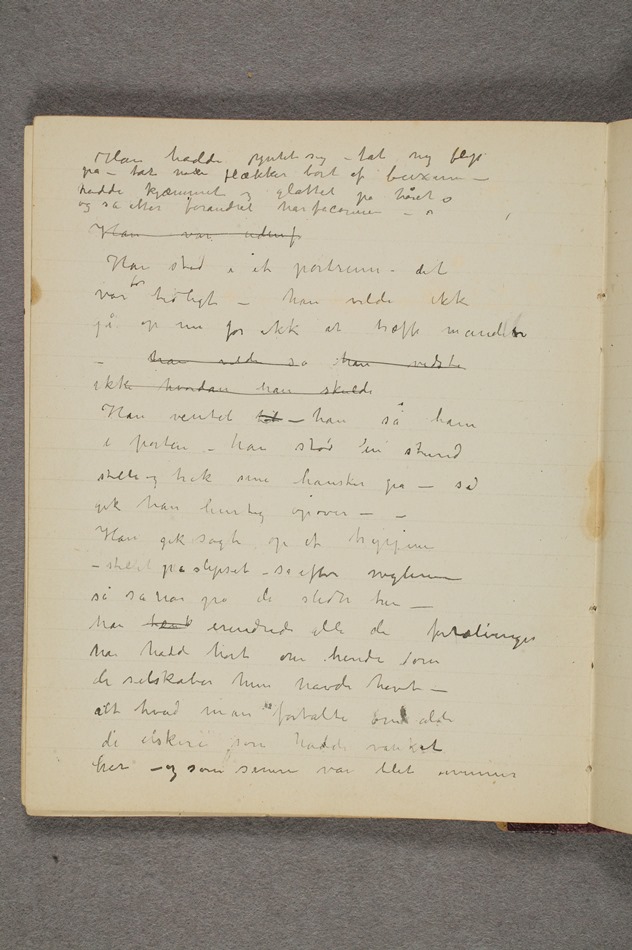 Han hadde pyntet sig – tat ny flip
på – tat noen flækker bort af buxerne –
hadde kjæmmet og glattet på håret
og så etter forandret harfaconen –
Han var uden
Han stod i et portrum – det
var for tidligt – han vilde ikk
gå op nu for ikk at træffe manden
– han vilde så han vidste
ikke hvordan han skulde
Han ventet – han så ham
i porten – han stod en stund
stille og trak sine hansker på – så
gik han hurtig opover – –
Han gik sagte op et
– stellet på slipset – så efter neglerne
så sa han på de
han erindrede alle de fortællinger
han hadd hørt om hende som
de selskaber hun havde havt –
alt hvad man fortalte om alde
di elskere som hadde vanket
her – og som senere var blet